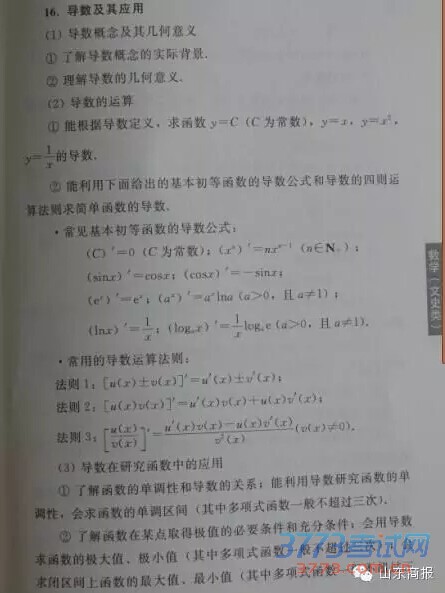 16. 导数及其应用
(1) 导数概念及其几何意义
① 了解导数概念的实际背景.
② 理解导数的几何意义.
(2) 导数的运算
① 能根据导数定义，求函数 y=C (C 为常数)，y=x，y=x²，
y=1/x 的导数.
② 能利用下面给出的基本初等函数的导数公式和导数的四则运
算法则求简单函数的导数.
·常见基本初等函数的导数公式：
(C)′=0 (C 为常数)；(xⁿ)′=nxⁿ⁻¹ (n∈N₊)；
(sinx)′=cosx；(cosx)′=−sinx；
(eˣ)′=eˣ；(aˣ)′=aˣlna (a>0，且 a≠1)；
(lnx)′=1/x；(logₐx)′=1/x logₐe (a>0，且 a≠1).
·常用的导数运算法则：
法则 1：[u(x)±v(x)]′=u′(x)±v′(x)；
法则 2：[u(x)v(x)]′=u′(x)v(x)+u(x)v′(x)；
法则 3：[u(x)/v(x)]′=(u′(x)v(x)−u(x)v′(x))/v²(x) (v(x)≠0).
(3) 导数在研究函数中的应用
① 了解函数的单调性和导数的关系；能利用导数研究函数的单
调性，会求函数的单调区间 (其中多项式函数一般不超过三次).
② 了解函数在某点取得极值的必要条件和充分条件；会用导数
求函数的极大值、极小值 (其中多项式函数一般不超过三次)；会
求闭区间上函数的最大值、最小值 (其中多项式函数
数学 (文史类)
3773考试网
山东商报